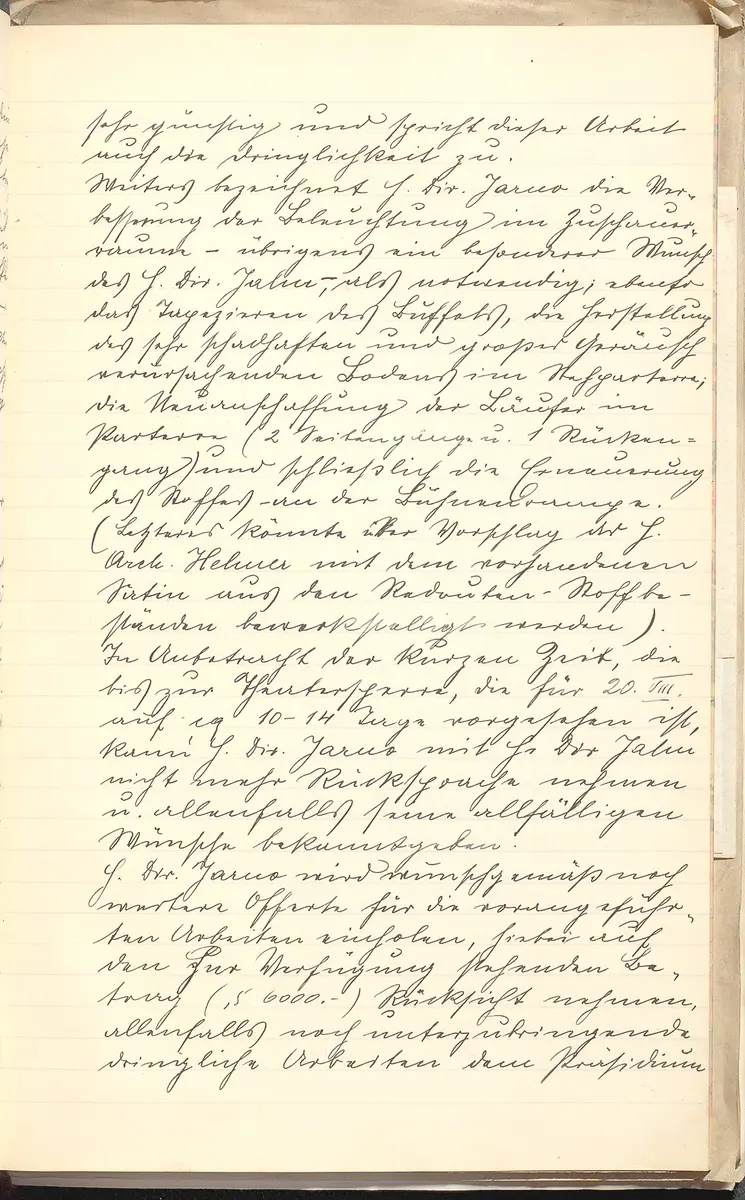 sehr günstig und spricht dieser Arbeit
auch die Dringlichkeit zu.
Weiters bezeichnet H. Dir. Jarno die Ver-
besserung der Beleuchtung im Zuschauer-
raume – übrigens ein besonderer Wunsch
des H. Dir. Jalm –, als notwendig; ebenso
das Tapezieren des Buffets, die Herstellung
des sehr schadhaften und großes Geräusch
verursachenden Bodens im Stehparterre;
die Neuanschaffung der Läufer im
Parterre (2 Seitengänge u. 1 Rücken=
gang) und schließlich die Erneuerung
des Stoffes an der Bühnenrampe.
(Letzteres könnte über Vorschlag des H.
Arch. Helmer mit dem vorhandenen
Satin aus den Redouten-Stoffbe-
ständen bewerkstelligt werden).
In Anbetracht der kurzen Zeit, die
bis zur Theatersperre, die für 20. VIII.
auf ca 10-14 Tage vorgesehen ist,
kann H. Dir. Jarno mit H. Dir Jalm
nicht mehr Rücksprache nehmen
u. allenfalls seine allfälligen
Wünsche bekanntgeben.
H. Dir. Jarno wird wunschgemäß noch
weitere Offerte für die vorangeführ-
ten Arbeiten einholen, hiebei auf
den zur Verfügung stehenden Be-
trag (S 6000.-) Rücksicht nehmen,
allenfalls noch unterzubringende
dringliche Arbeiten dem Präsidium